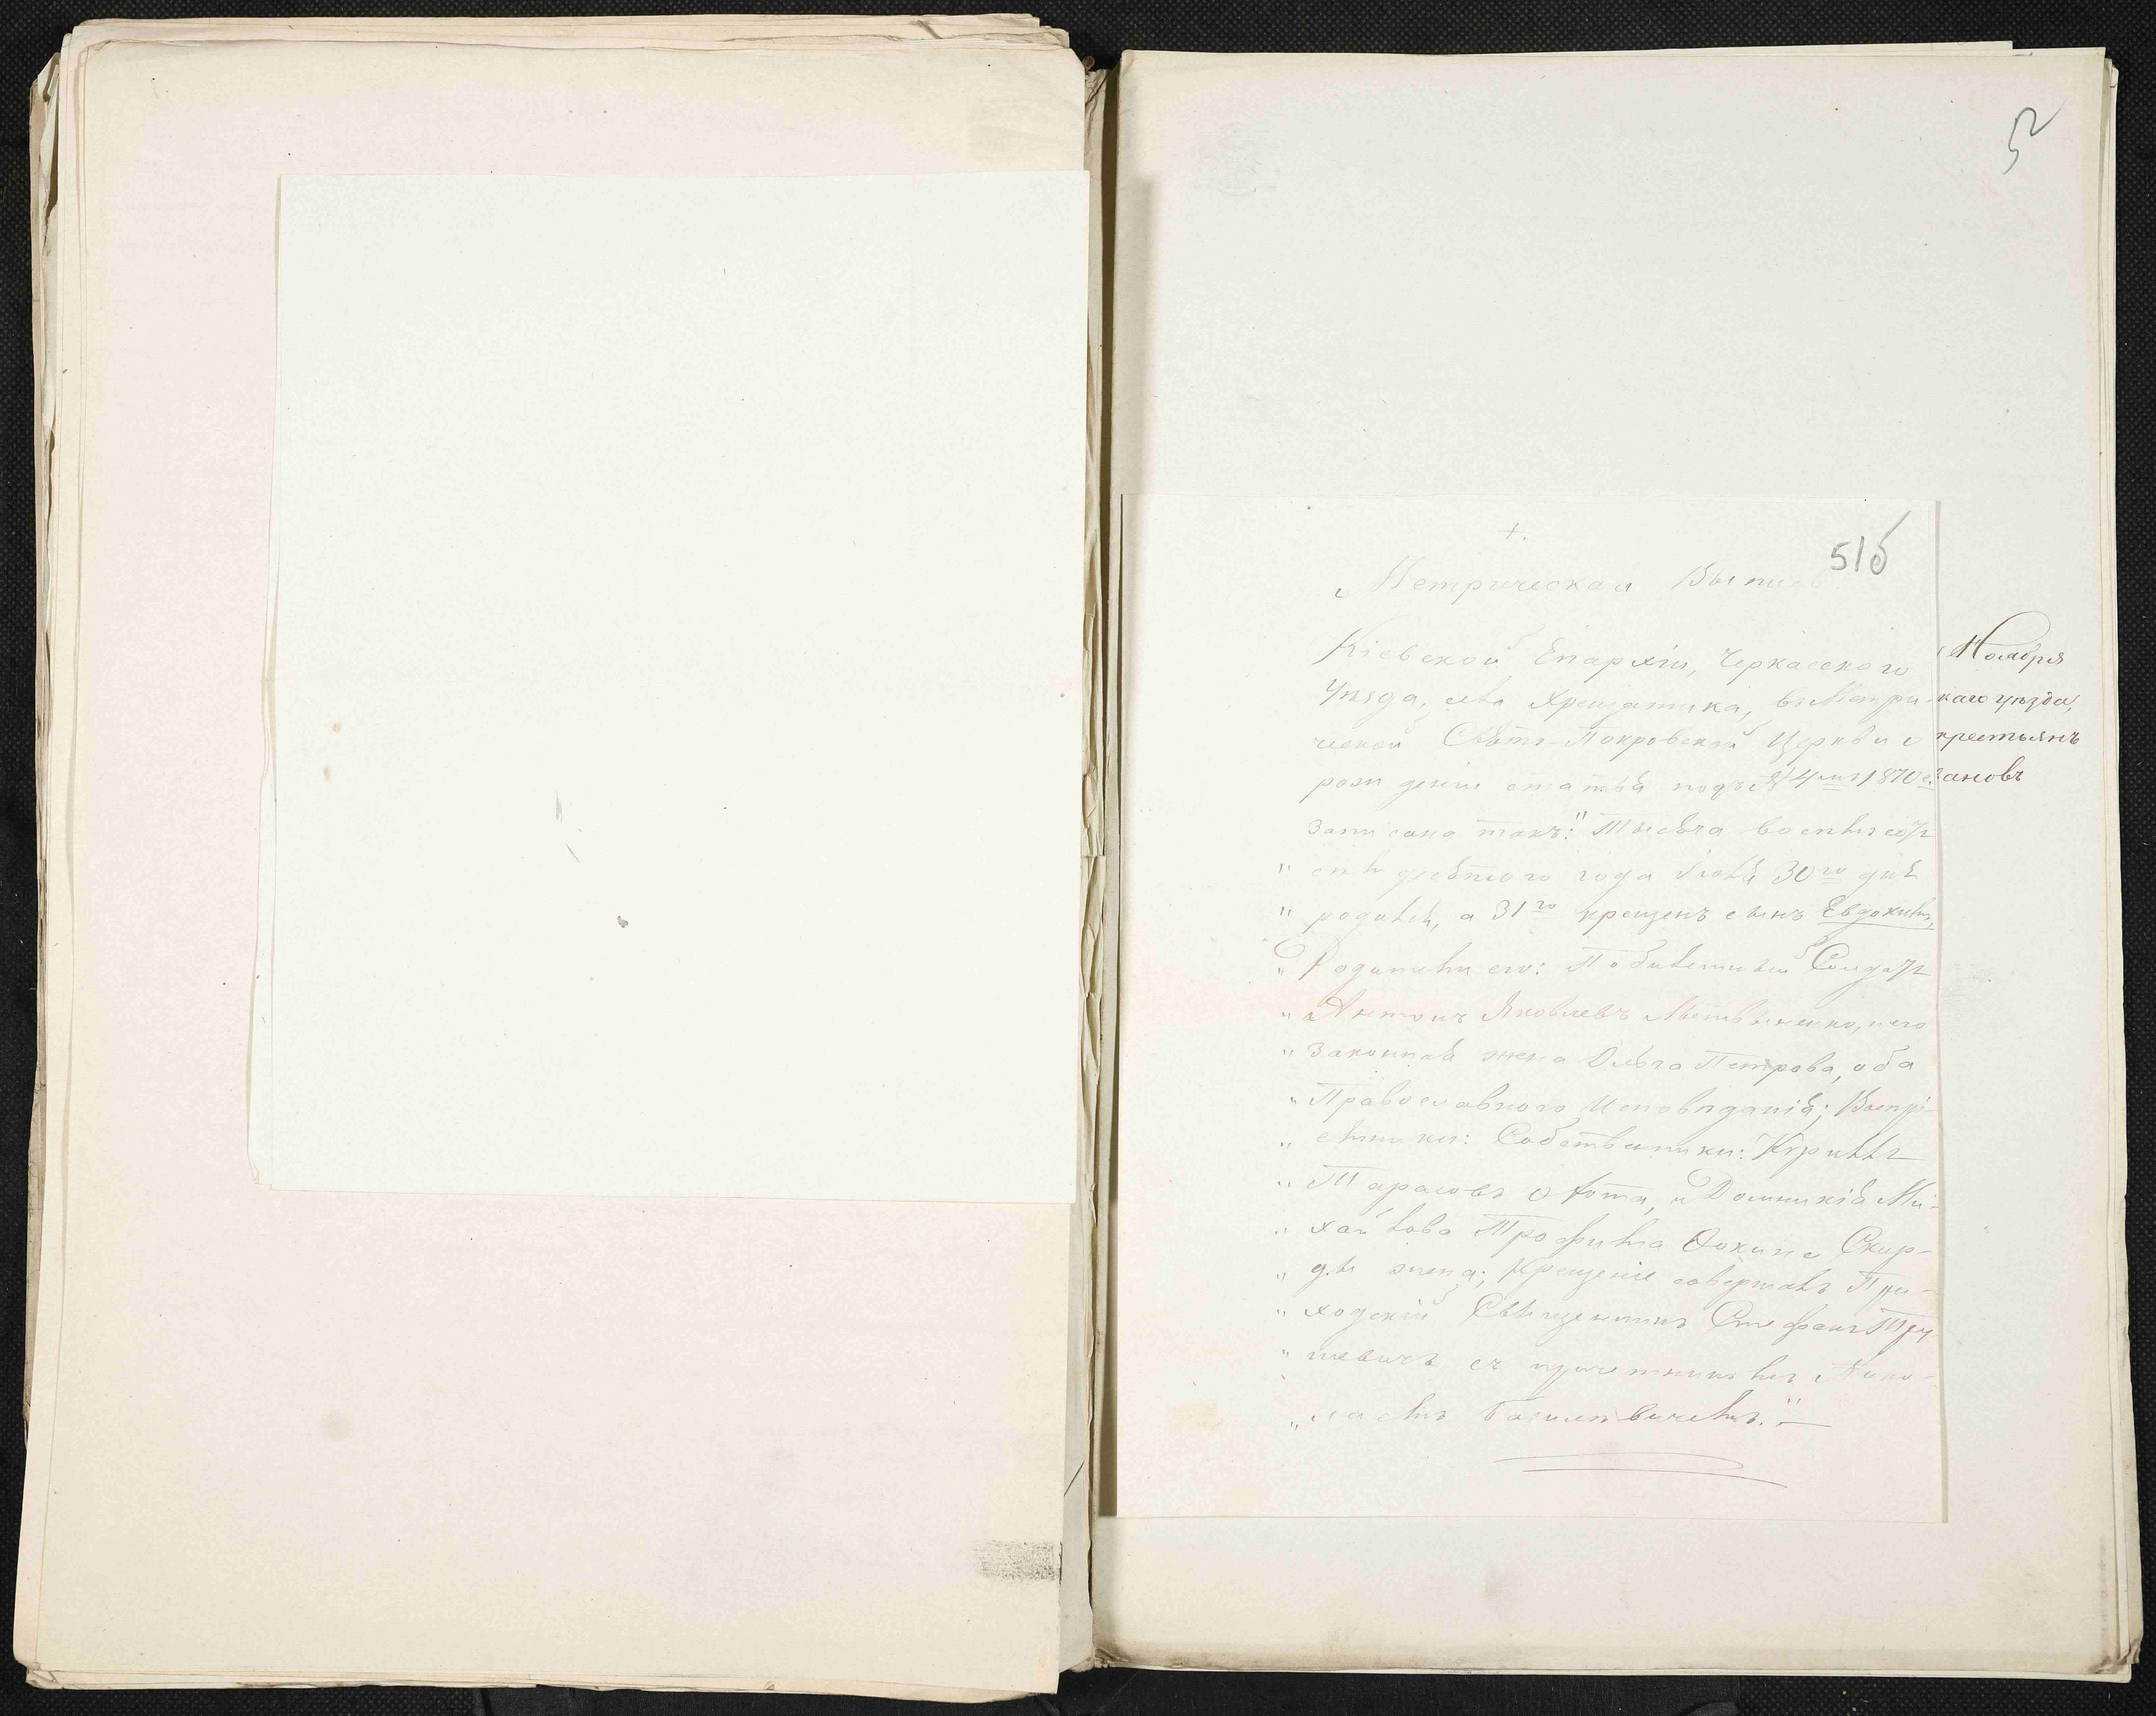 52
+.
51б
Метрическая Выпись.
Кіевской Епархіи, Черкасского
Уѣзда, села Хрещатика, въ Метри-
ческой Свято-Покровской Церкви о
рожденіи статья подъ № 4мъ 1870 г.
записана такъ: "Тысяча восемьсотъ
" семьдесятого года Іюля 30го дня
" родился, а 31го крещенъ сынъ Евдокимъ,
" Родители его: По билетный Солдатъ
" Антонъ Яковлевъ Метвѣненко, и его
" законная жена Ольга Петрова, оба
" Православного Исповѣданія; Воспрі-
" емники: Собственники: Кириллъ
" Тарасовъ и Домникія Ми-
" хайлова Трофима Скир-
" ды жена; Крещеніе совершалъ При-
" ходскій Священникъ Стефанъ
" съ причетникомъ Нико-
" лаемъ Базилевичемъ."
Ноября
каго уѣзда,
крестьянъ
зановъ